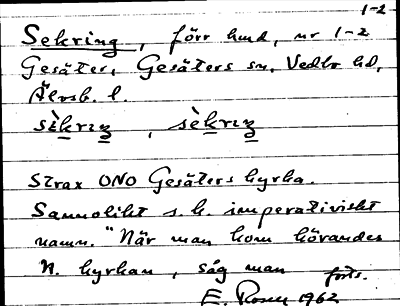 1-2
Sekring, förr hmd, nr 1-2
Gesäter, Gesäters sn, Vedbo hd,
Älvsb. l.
sèkrɪŋ, sèkrɪŋ
Strax ONO Gesäters kyrka.
Sannolikt s. k. imperativiskt
namn. "När man kom körandes
t. kyrkan, såg man forts.
E. Rosen 1962